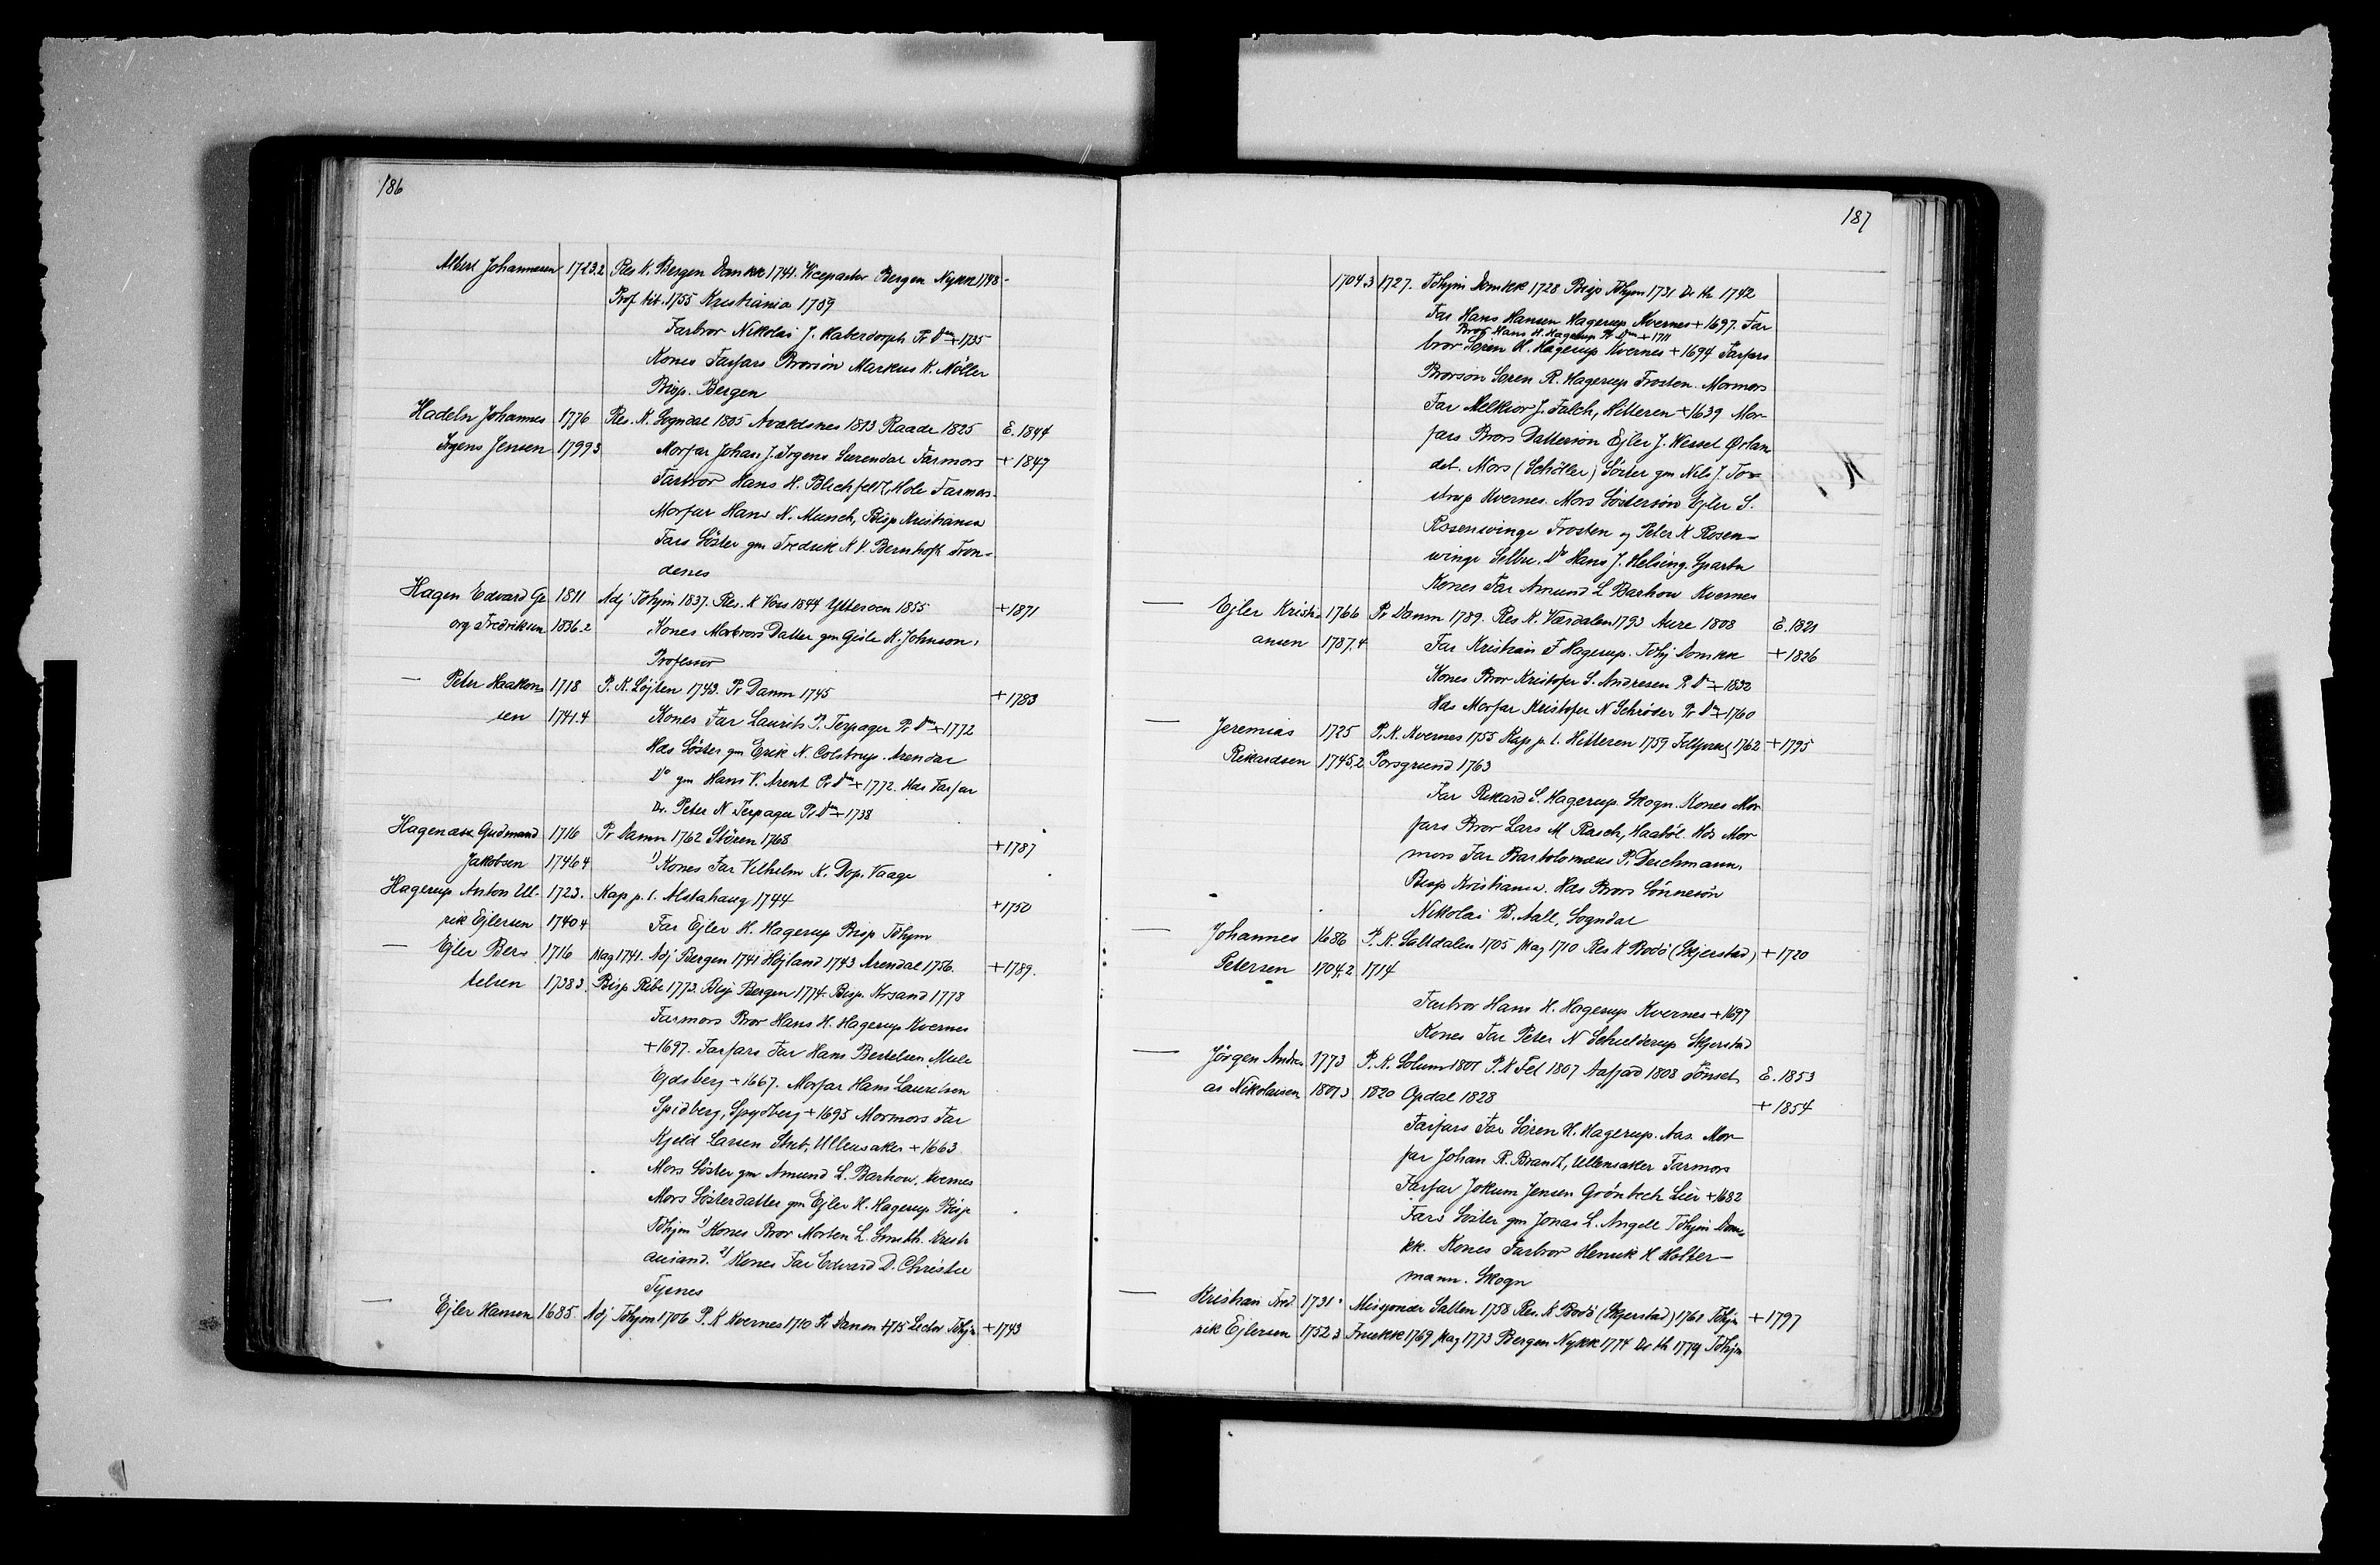 186
Albert Johannesen 1723.2 Res K. Bergen Domkk 1741. Vicepastor Bergen Nykk 1748-
Prof tit. 1755 Kristiania 1759
Farbror Nikolai J. Haberdorph Pr Dm + 1735
Kones Farfars Brorsön Markus K. Möller
Bisp. Bergen
Hadeln Johannes 1776 Res. K. Sogndal 1805 Avaldsnes 1813 Raade 1825 E. 1844
Irgens Jensen 1799 3 Morfar Johan J. Irgens Surendal Farmors + 1847
Farbror Hans H. Blichfeldt, Hole Farmors
Morfar Hans N. Munch, Bisp Kristiania
Fars Söster gm Fredrik N V. Bernhoft Tron-
denes
Hagen Edvard Ge 1811 Adj Tdhjm 1837. Res. K Voss 1844 Ytteröen 1855 + 1871
org Fredriksen 1836.2 Kones Morbrors Datter gm Gisle K. Johnson,
Professor
— Peter Haakons 1718 P. K. Löjten 1743. Pr Danm 1745 + 1783
sen 1741.4 Kones Far Laurits P. Terpager Pr Dm + 1772
Hds Söster gm Erik N. Colstrup. Arendal
Do gm Hans V. Arent Pr Dm + 1772. Hds Farfar
Dr. Peter N Terpager Pr Dm + 1738
Hagenæs Gudmand 1716 Pr Danm 1762 Stören 1768 + 1787
Jakobsen 1746 4 1) Kones Far Vilhelm K. Dop. Vaage
Hagerup Anton Ul- 1723. Kap p. l. Alstahaug 1744 + 1750
rik Ejlersen 1740 4 Far Ejler H. Hagerup Bisp Tdhjm
— Ejler Ber- 1716 Mag 1741. Adj Bergen 1741 Höjland 1743 Arendal 1756. + 1789.
telsen 1738 3. Bisp Ribe 1773. Bisp Bergen 1774. Bisp. Krsand 1778
Farmors Bror Hans H. Hagerup Kvernes
+ 1697. Farfars Far Hans Bertelsen Mule
Ejdsberg + 1667. Morfar Hans Lauretsen
Spidberg, Spydberg + 1695 Mormors Far
Kjeld Larsen Stub, Ullensaker + 1663
Mors Söster gm Amund L. Barhow. Kvernes
Mors Sösterdatter gm Ejler H. Hagerup Bisp
Tdhjm 1) Kones Bror Morten L. Smith. Kristi
ansand. 2) Kones Far Edvard D. Christie
Tysnes
— Ejler Hansen 1685. Adj Tdhjm 1706 P. K Kvernes 1710 Pr Danm 1715 Lector Tdhjm + 1743
187
1704.3 1727. Tdhjm Domkk 1728 Bisp Tdhjm 1731 Dr th 1742
Far Hans Hansen Hagerup Kvernes + 1697. Far
Bror Hans H. Hagerup Pr Dm + 1711
bror Sören H. Hagerup Kvernes + 1694 Farfars
Brorsön Sören R. Hagerup Frosten. Mormors
Far Melkior J. Falch, Hitteren + 1639 Mor-
fars Brors Dattersön Ejler J. Wessel Ørlan
det. Mors (Schöller) Söster gm Nils J. Tor-
strup Kvernes. Mors Söstersön Ejler S.
Rosenvinge Frosten og Peter K Rosen-
vinge Selbu. Do Hans J. Helsing. Sparbu
Kones Far Amund L Barhow Kvernes
— Ejler Kristi- 1766 Pr Danm 1789. Res K. Værdalen 1793 Aure 1808 E. 1821
ansen 1787.4 Far Kristian F Hagerup. Tdhj Domkk + 1826
Kones Bror Kristofer S. Andresen P. Dm + 1832
Hds Morfar Kristofer N Schröder Pr Dm + 1760
— Jeremias 1725 P. K. Kvernes 1755 Kap p. l. Hitteren 1759 Feltprest 1762 + 1795
Rikardsen 1745.2 Porsgrund 1763
Far Rikard S. Hagerup Skogn. Kones Mor
fars Bror Lars M Rasch, Haaböl. Hds Mor
mors Far Bartolomæus P. Deichmann,
Bisp Kristiania. Hds Brors Sönnesön
Nikolai B. Aall, Sogndal
— Johannes 1686 P. K. Saltdalen 1705 Mag 1710 Res K Bodö (Skjerstad) + 1720
Petersen 1704.2 1714
Farbror Hans H. Hagerup Kvernes + 1697
Kones Far Peter N Schielderup Skjerstad
— Jörgen Andre- 1773 P. K. Solum 1801 P. K Fet 1807 Aafjord 1808 Tönset E. 1853
as Nikolaisen 1801 3 1820 Opdal 1828 + 1854
Farfars Far Sören H. Hagerup. Aas. Mor-
far Johan R. Brandt, Ullensaker Farmors
Farfar Jokum Jensen Grönbech Lier + 1682
Fars Söster gm Jonas L. Angell Tdhjm Dom-
kk. Kones Farbror Henrik H Holter-
mann. Skogn
— Kristian Fred- 1731. Misjonær Salten 1758 Res. K Bodö (Skjerstad) 1761 Tdhjm + 1797
rik Ejlersen 1752 3 Fruekk 1769 Mag 1773 Bergen Nykk 1774 Dr th 1779 Tdhjm